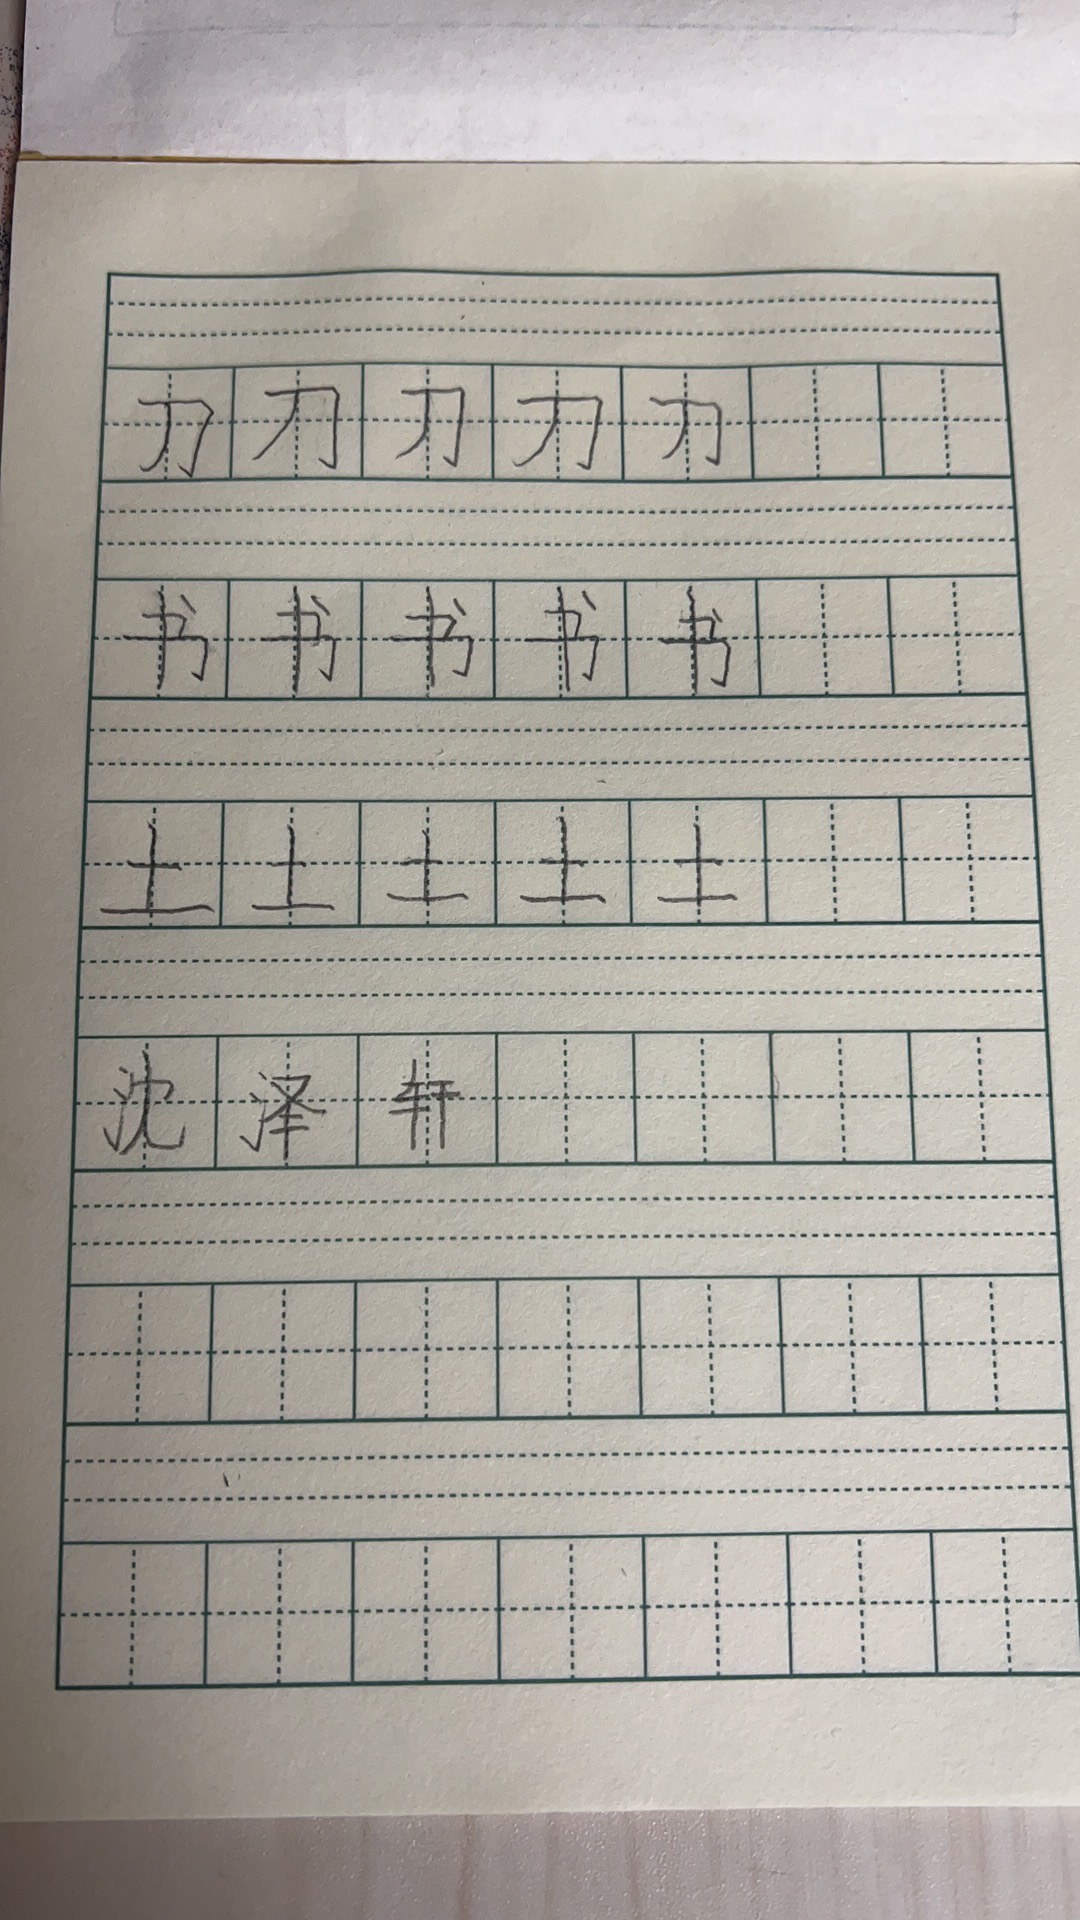 刀刀刀刀刀
书书书书书
土土土土土
沈泽轩